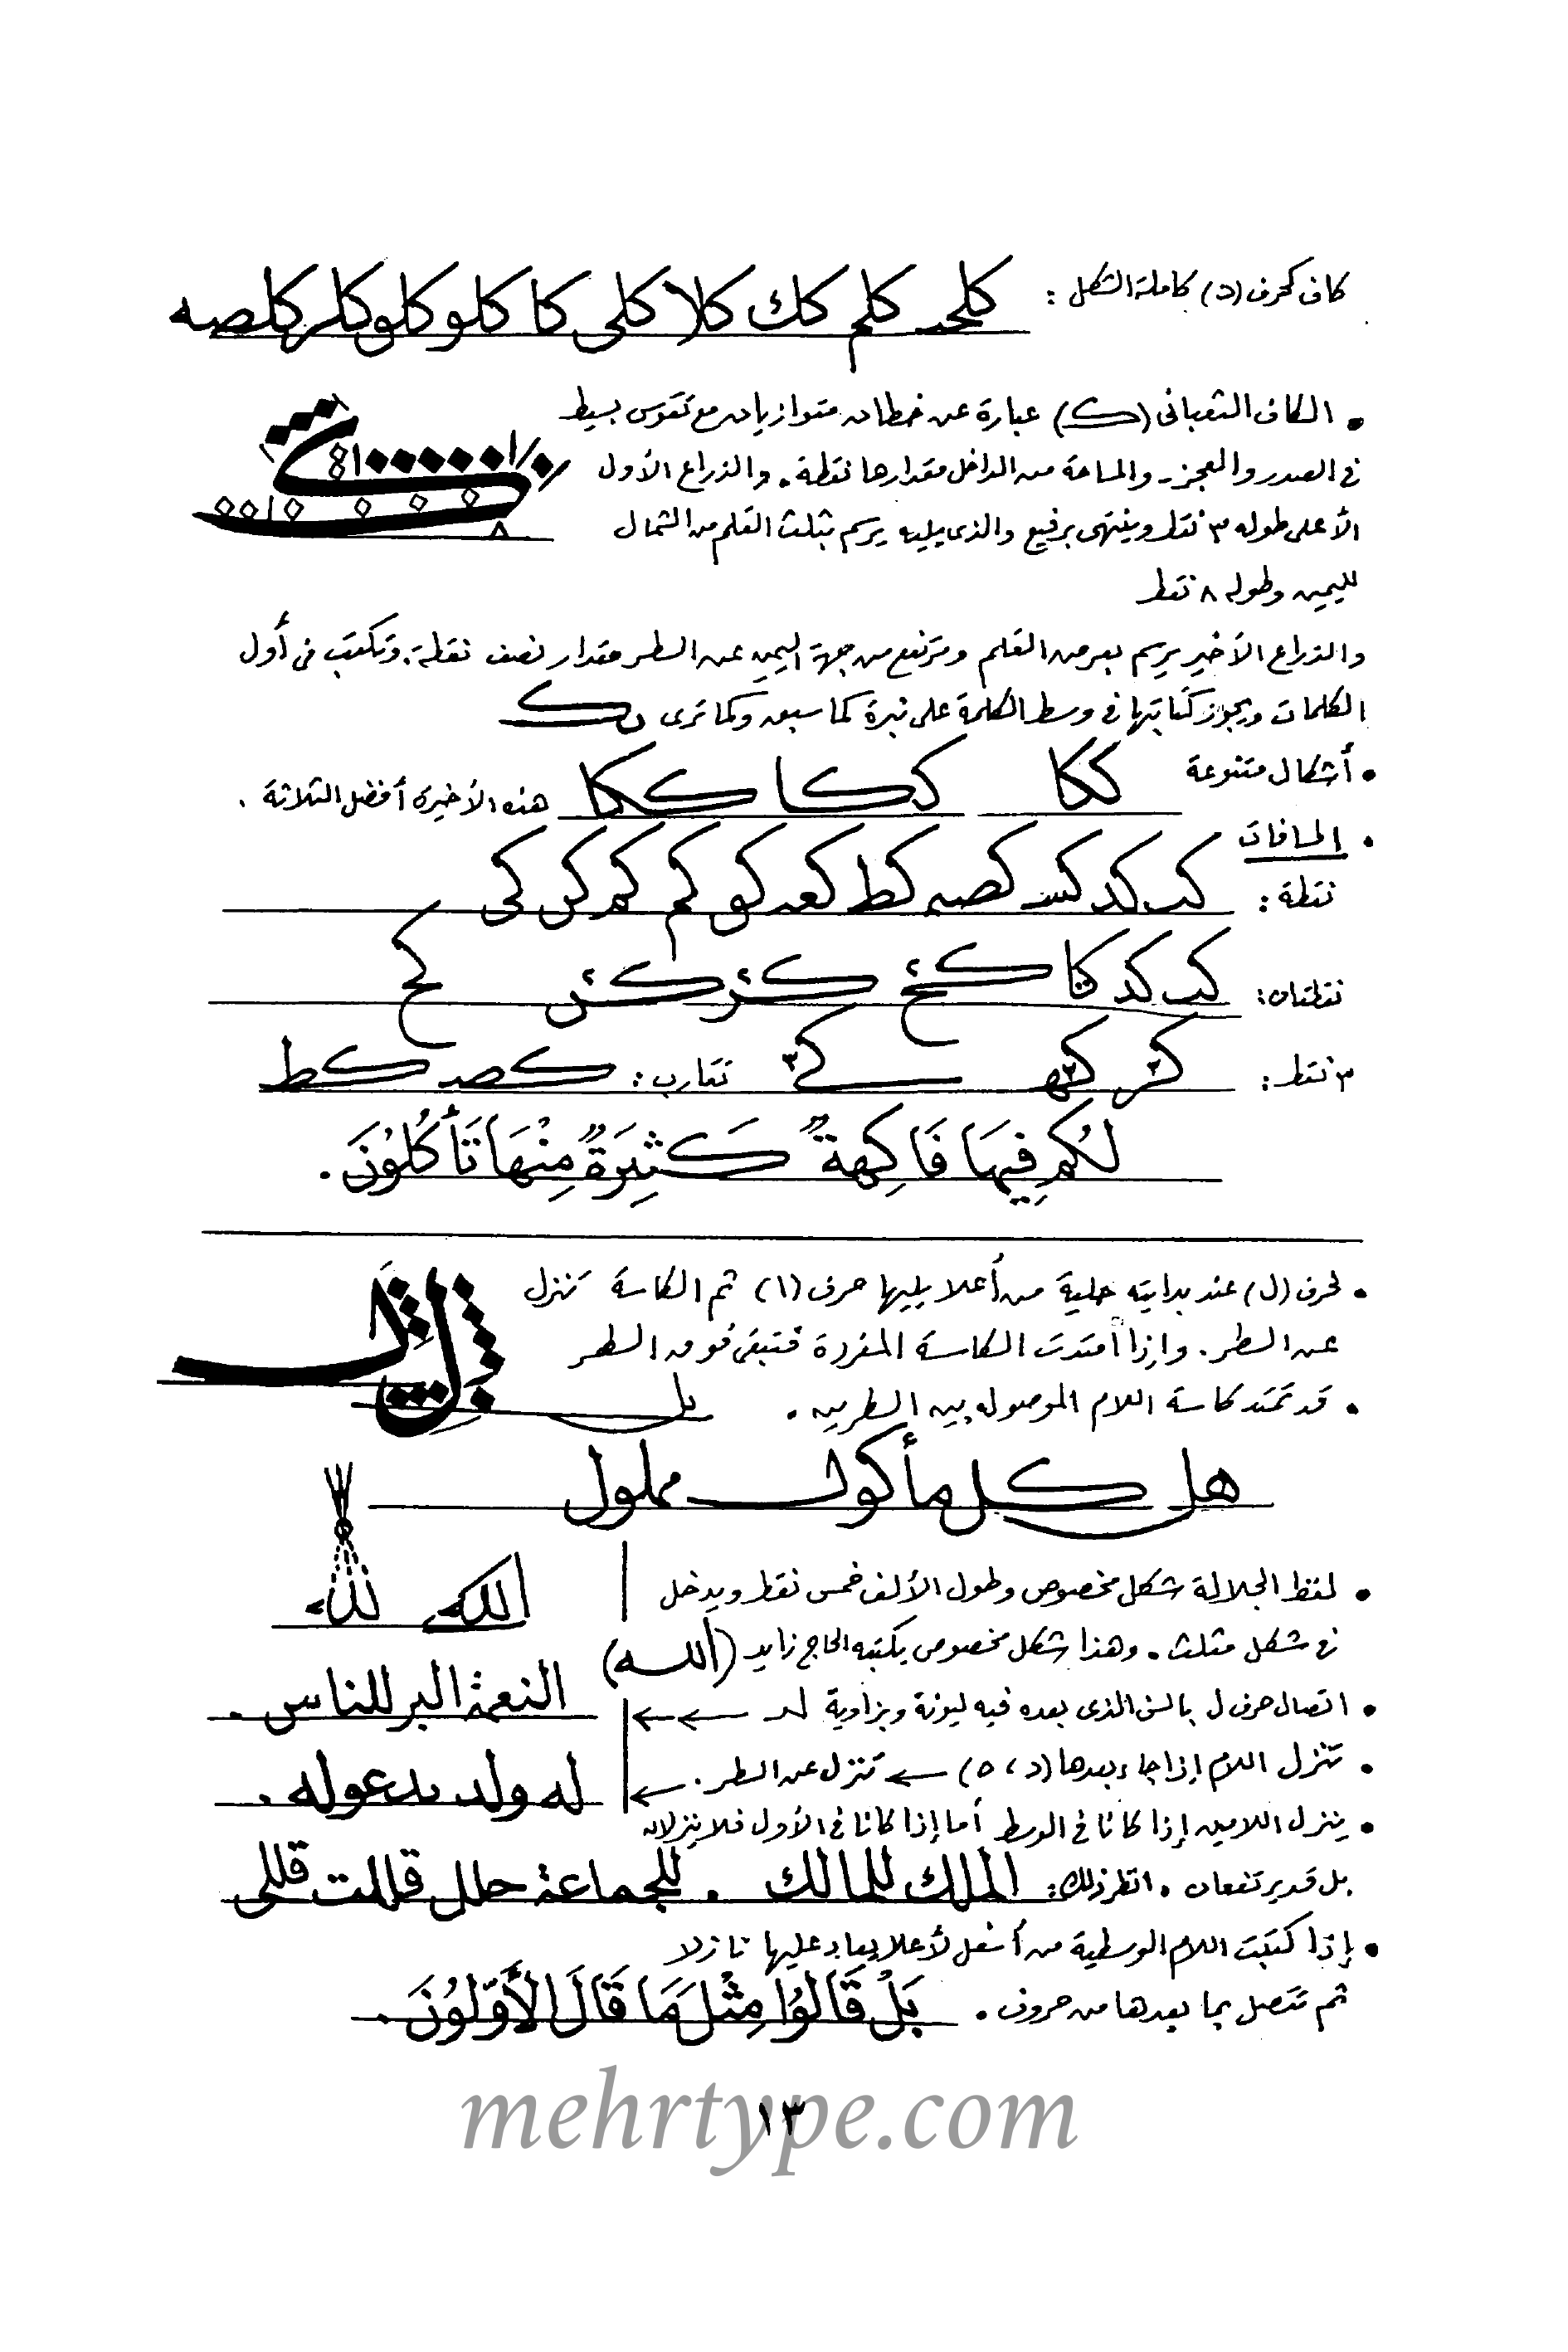 كاف كحرف (د) كاملة الشكل : كلحد كلم كك كلا كلى كا كلو كلو كلر كلصه
• الكاف الثعبانى (ك) عبارة عن خطان متوازيان مع تقوس بسيط
فى الصدر والعجز - والمساحة من الداخل مقدارها نقطة . والذراع الأول
الأعلى طوله ٣ نقط وينتهى برفيع والذى يليه يرسم بثلث القلم من الشمال
لليمين وطوله ٨ نقط
والذراع الأخير يرسم بعرض القلم وترتفع من جهة اليمين عن السطر مقدار نصف نقطة . وتكتب فى أول
الكلمات ويجوز كتابتها فى وسط الكلمة على نبرة كما سبق وكما ترى
• أشكال متنوعة ككا ككا ككا هذه الأخيرة أفضل الثلاثة .
• المسافات
نقطة : كب كد كس كصه كط كعه كو كم كم كن كى
نقطتان : كب كد كا كح كر كن كح
٣ نقط : كر كه ك ٣ تقارب : كصد كط
لَكُم فِيهَا فَاكِهةٌ كَثِيَرةٌ مِنْهَا تَأكُلُوْنَ .
• لحرف (ل) عند بدايته حلية من أعلا يليها حرف (١) ثم الكاسة تنزل
عن السطر . وإذا أمتدت الكاسة المفردة فتبقى فوق السطر
• قد تمتد كاسة اللام الموصول بين السطرين . بل
هل كل مأكول مملول
• لفظ الجلالة شكل مخصوص وطول الألف خمس نقط ويدخل الله لله
فى شكل مثلث . وهذا شكل مخصوص يكتبه الحاج زايد (الله)
• اتصال حرف ل بالسن الذى بعده فيه ليونة وبزاوية لد ← ← النعمة البر للناس .
• تنزل اللام إذا جاء بعدها (د ، ه) ← تنزل عن السطر . ← له ولد يدعوله .
• ينزل اللامين إذا كانا فى الوسط أما إذا كانا فى الأول فلا ينزلان
بل قد يرتفعان . انظر ذلك : الملك للمالك . للجماعة حلل قللت قللى
• إذا كتبت اللام الوسطية من أسفل لأعلا يعاد عليها نازلا
ثم تتصل بما بعدها من حروف . بَلْ قَالوُا مِثْلَ مَا قَالَ الأَوّلوُنَ .
١٣
mehrtype.com